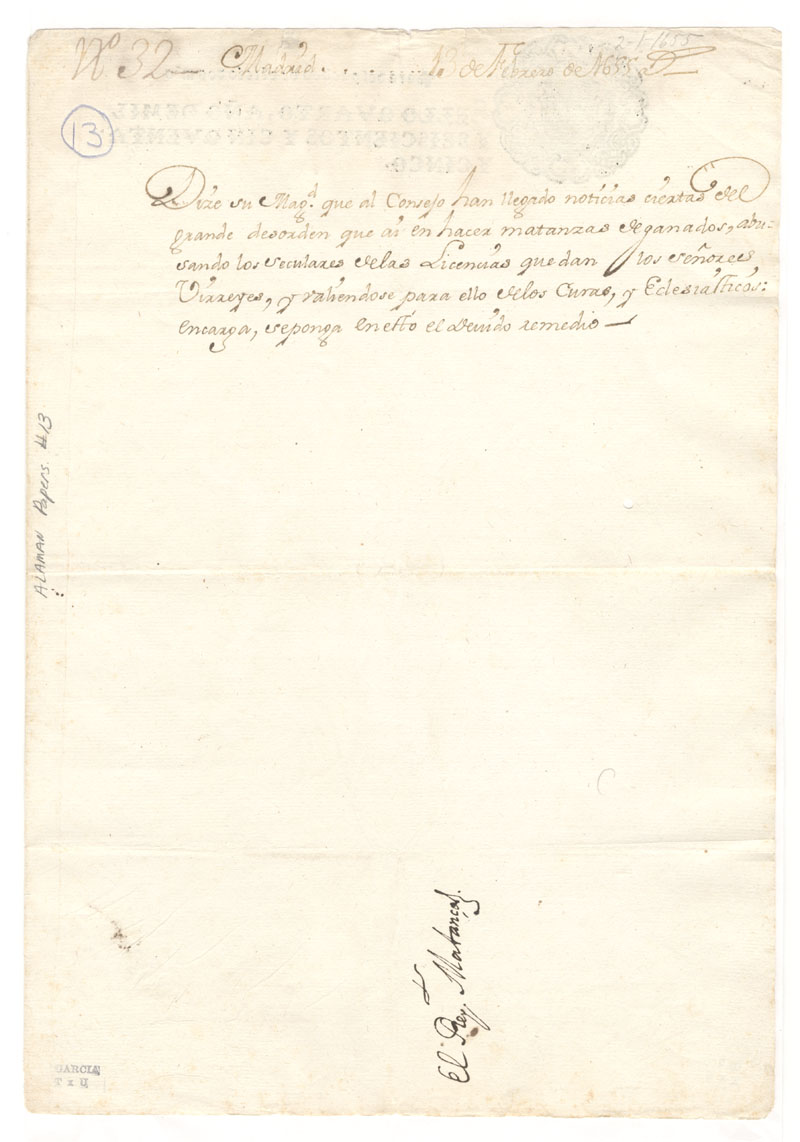 2-1-1655
Nº 32 Madrid. 13 de Febrero de 1655
13
SELLO QVARTO, AÑO DE MIL
SEISCIENTOS Y CINQVENTA
Y CINCO.
Dize su Mag.d que al Consejo han llegado noticias ciertas del
grande desorden que ai en hacer matanzas de ganados, abu-
sando los seculares de las Licencias que dan los señores
Virreyes, y valiendose para ello de los Curas, y Eclesiasticos:
encarga, se ponga en esto el devido remedio
ALAMAN Papers. #13
El Rey. Matanças.
GARCIA